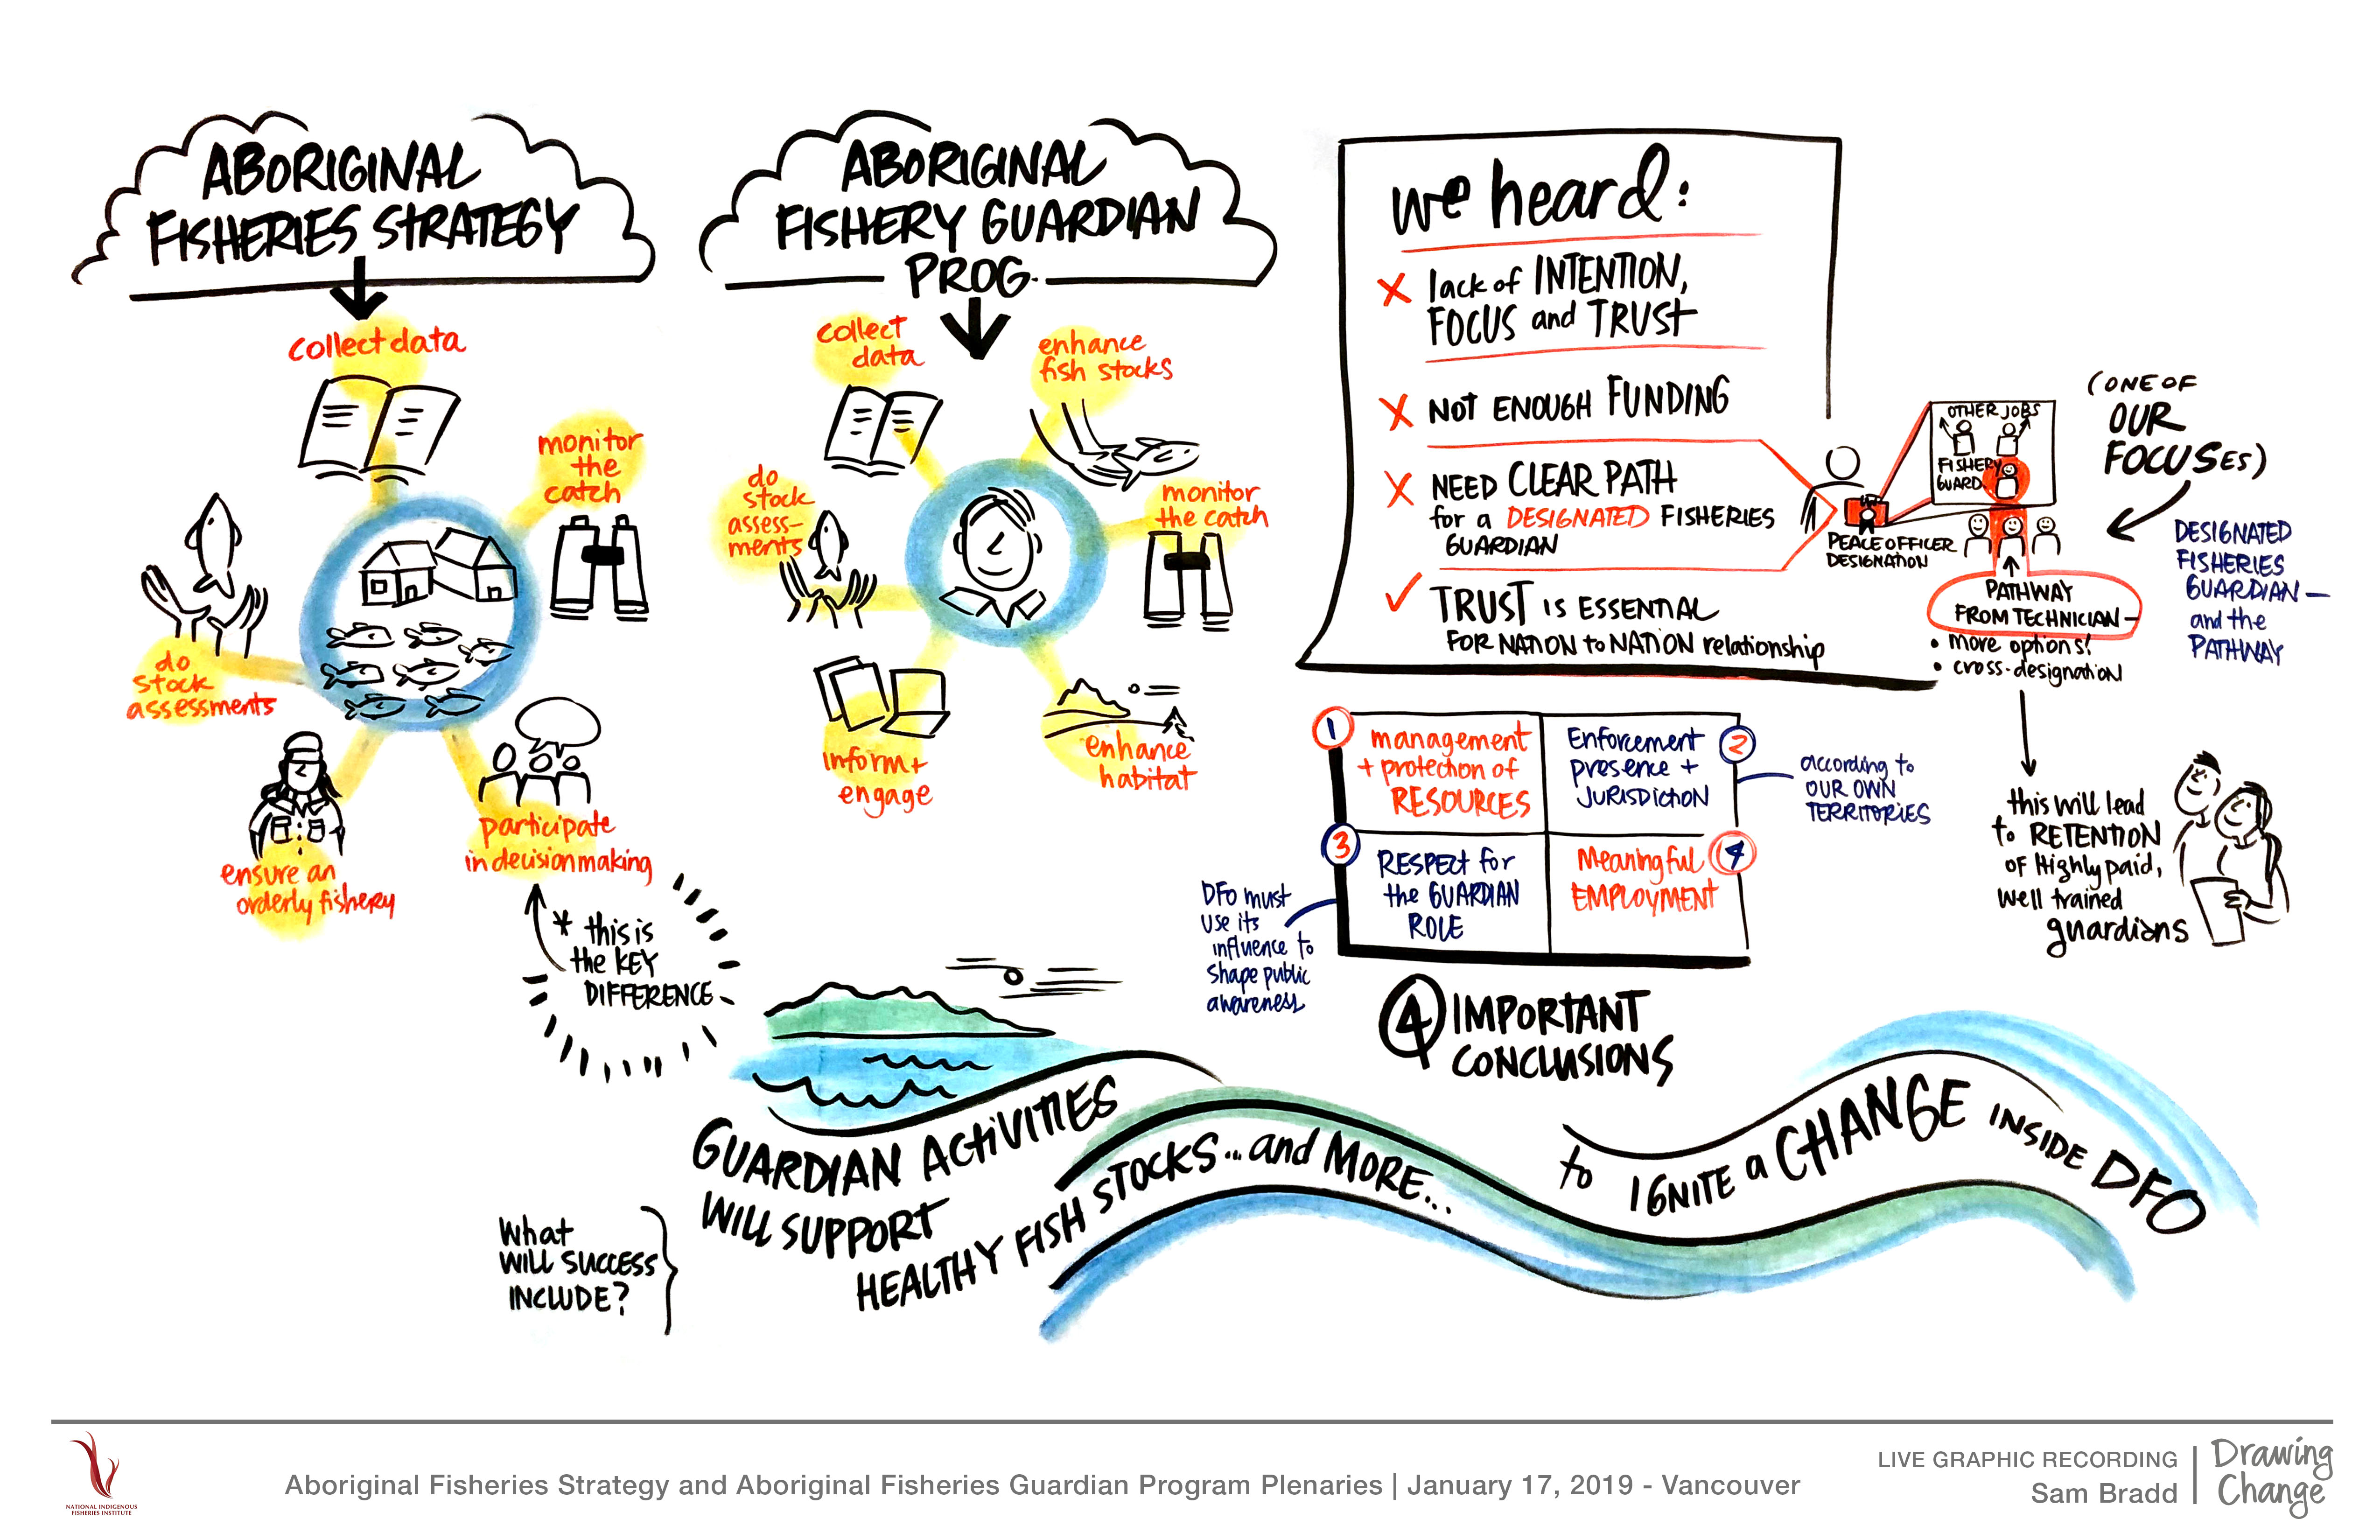 ABORIGINAL
FISHERIES STRATEGY
collect data
monitor
the
catch
do
stock
assessments
ensure an
orderly fishery
participate
in decision making
* this is
the KEY
DIFFERENCE
ABORIGINAL
FISHERY GUARDIAN
PROG.
collect
data
enhance
fish stocks
do
stock
assess-
ments
monitor
the catch
inform +
engage
enhance
habitat
we heard:
X lack of INTENTION,
FOCUS and TRUST
X NOT ENOUGH FUNDING
X NEED CLEAR PATH
for a DESIGNATED FISHERIES
GUARDIAN
✓ TRUST IS ESSENTIAL
FOR NATION to NATION relationship
PEACE OFFICER
DESIGNATION
OTHER JOBS
FISHERY
GUARD.
PATHWAY
FROM TECHNICIAN -
• more options!
• cross-designation
(ONE OF
OUR
FOCUSES)
DESIGNATED
FISHERIES
GUARDIAN —
and the
PATHWAY
this will lead
to RETENTION
OF Highly paid,
well trained
guardians
1 management
+ protection of
RESOURCES
Enforcement 2
presence +
JURISDICTION
according to
OUR OWN
TERRITORIES
3 RESPECT for
the GUARDIAN
ROLE
Meaningful 4
EMPLOYMENT
DFO must
use its
influence to
shape public
awareness
4 IMPORTANT
CONCLUSIONS
What
WILL SUCCESS
INCLUDE?
GUARDIAN ACTIVITIES
WILL SUPPORT
HEALTHY FISH STOCKS...and MORE...
to IGNITE a CHANGE INSIDE DFO
NATIONAL INDIGENOUS
FISHERIES INSTITUTE
Aboriginal Fisheries Strategy and Aboriginal Fisheries Guardian Program Plenaries | January 17, 2019 - Vancouver
LIVE GRAPHIC RECORDING
Sam Bradd
Drawing
Change